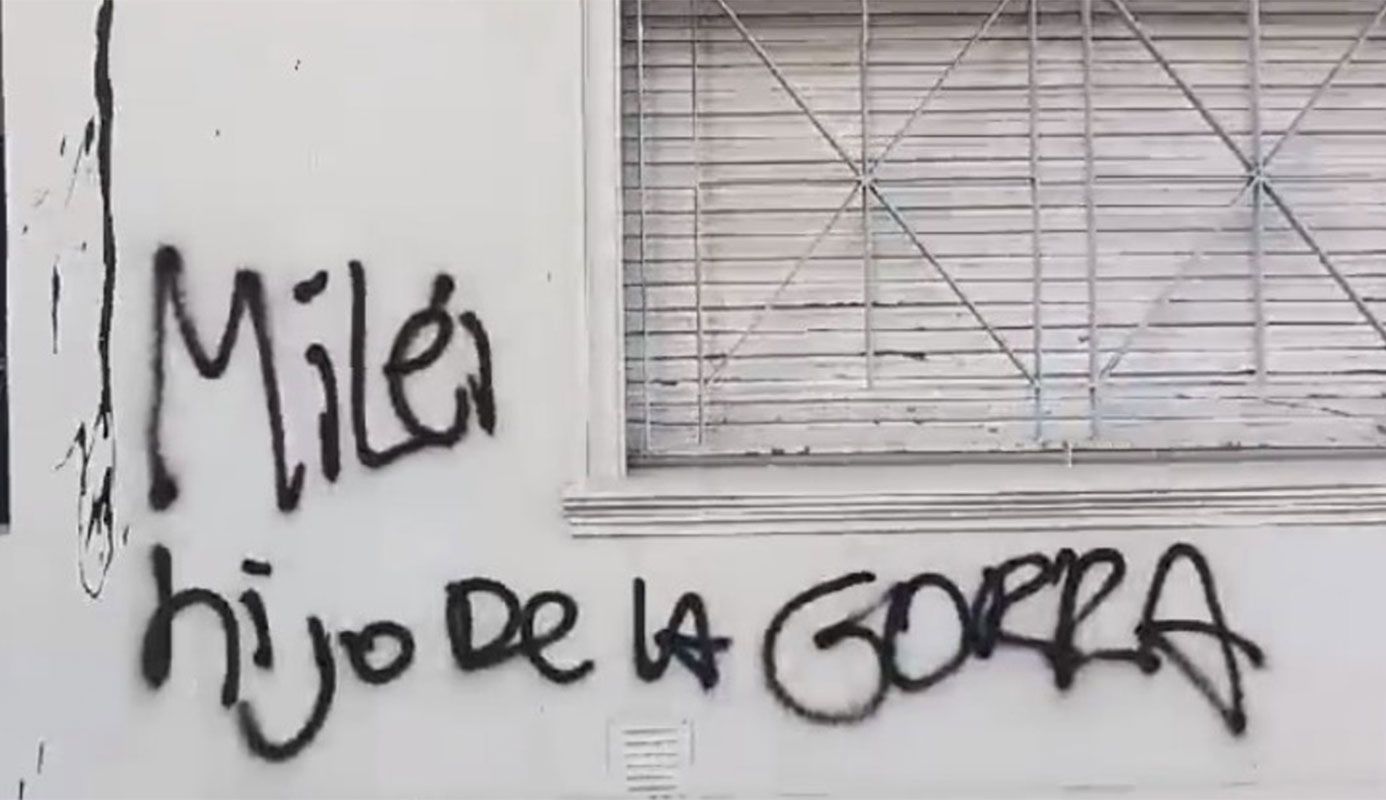 Milei
hijo De LA GORRA